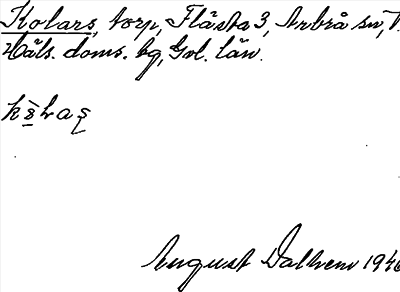 Kolars, torp, Flästa 3, Arbrå sn, V.
Häls. doms. hg, Gvl. län.
August Dalhem 1946